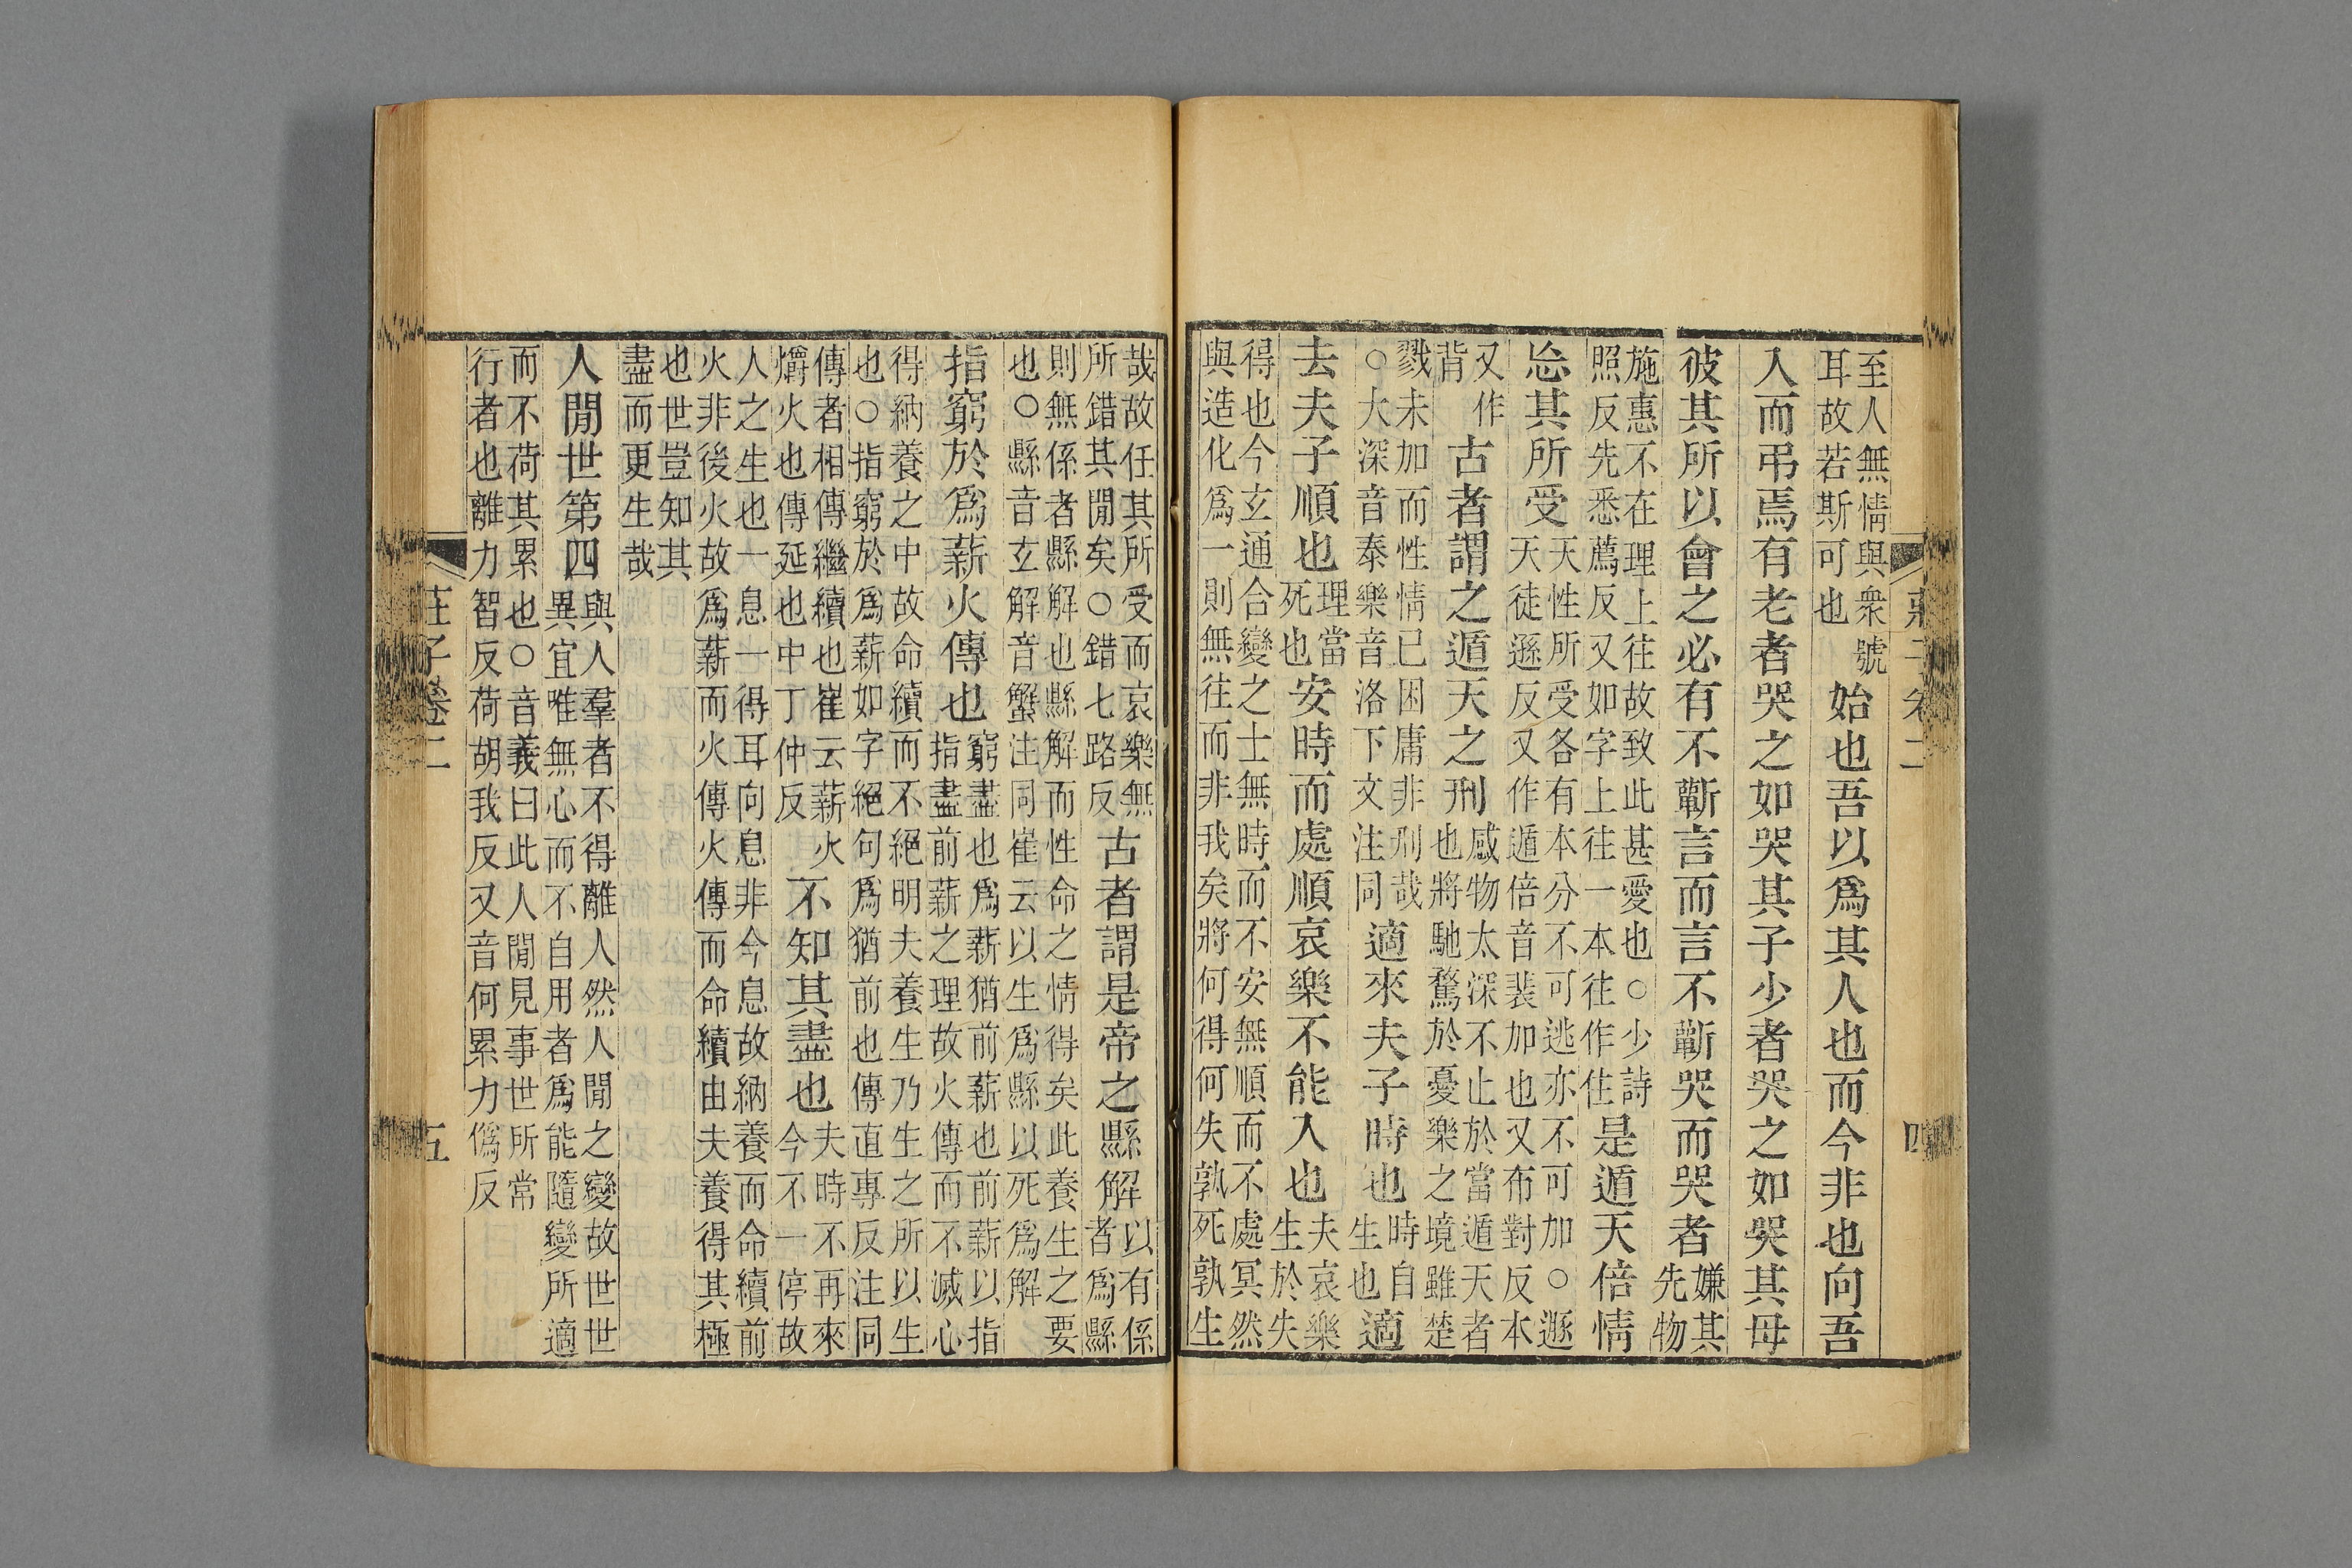 莊子卷二
四
至人無情與衆號
耳故若斯可也
始也吾以爲其人也而今非也向吾
入而弔焉有老者哭之如哭其子少者哭之如哭其母
彼其所以會之必有不蘄言而言不蘄哭而哭者
嫌其
先物
施惠不在理上往故致此甚愛也○少詩
照反先悉薦反又如字上往一本往作住
是遁天倍情
忘其所受
天性所受各有本分不可逃亦不可加○遯
天徒遜反又作遁倍音裴加也又布對反本
又作
背
古者謂之遁天之刑
感物太深不止於當遁天者
也將馳騖於憂樂之境雖楚
戮未加而性情已困庸非刑哉
○大深音泰樂音洛下文注同
適來夫子時也
時自
生也
適
去夫子順也
理當
死也
安時而處順哀樂不能入也
夫哀樂
生於失
得也今玄通合變之士無時而不安無順而不處冥然
與造化爲一則無往而非我矣將何得何失孰死孰生
哉故任其所受而哀樂無
所錯其閒矣○錯七路反
古者謂是帝之縣解
以有係
者爲縣
則無係者縣解也縣解而性命之情得矣此養生之要
也○縣音玄解音蟹注同崔云以生爲縣以死爲解
指窮於爲薪火傳也
窮盡也爲薪猶前薪也前薪以指
指盡前薪之理故火傳而不滅心
得納養之中故命續而不絕明夫養生乃生之所以生
也○指窮於爲薪如字絕句爲猶前也傳直專反注同
傳者相傳繼續也崔云薪火
爝火也傳延也中丁仲反
不知其盡也
夫時不再來
今不一停故
人之生也一息一得耳向息非今息故納養而命續前
火非後火故爲薪而火傳火傳而命續由夫養得其極
也世豈知其
盡而更生哉
人閒世第四
與人羣者不得離人然人閒之變故世世
異宜唯無心而不自用者爲能隨變所適
而不荷其累也○音義曰此人閒見事世所常
行者也離力智反荷胡我反又音何累力僞反
莊子卷二
五